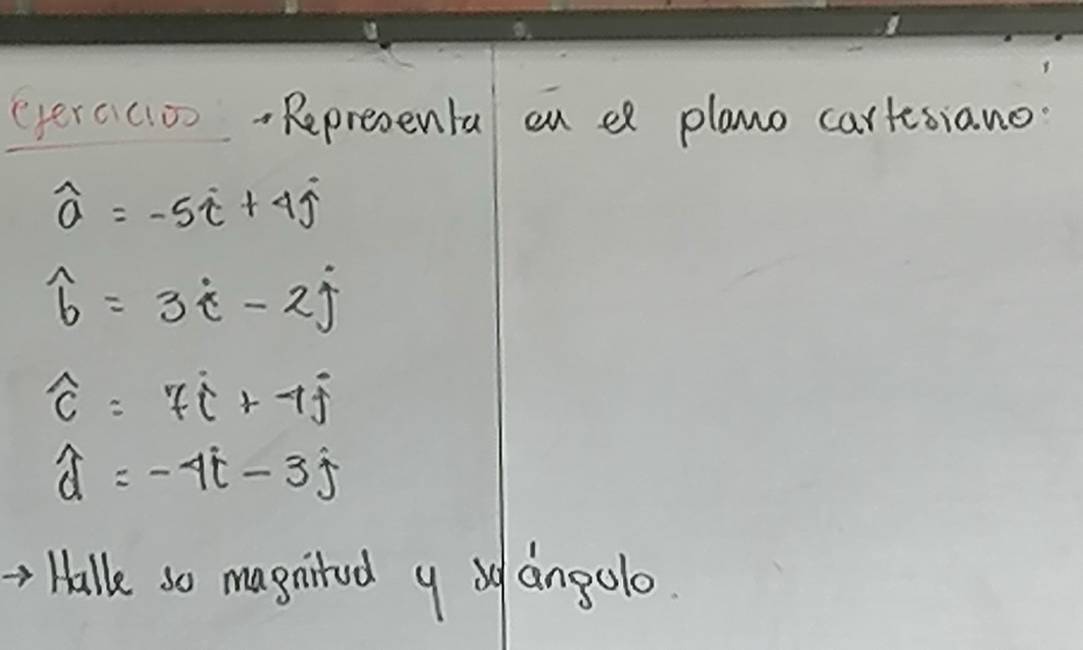 Ejercicios → Representa en el plano cartesiano:
â = -5i + 4j
b̂ = 3i - 2j
ĉ = 7i + 4j
d̂ = -4i - 3j
→ Halle su magnitud y su ángulo.